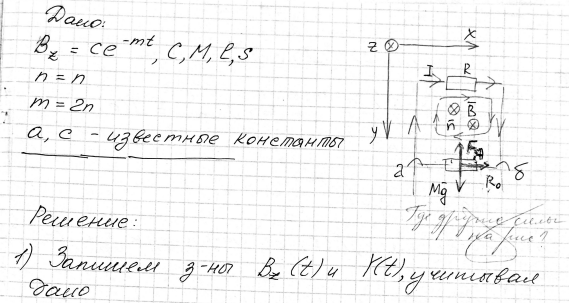 Дано:
B_z = ce^{-mt}, C, M, l, s
n = n
m = 2n
а, с - известные константы
z ⊗ x
y
I R
n̄ B̄
а б
Mḡ R₀
Где другие силы
на рис?
Решение:
1) Запишем з-ны B_z(t) и Y(t), учитывая
дано